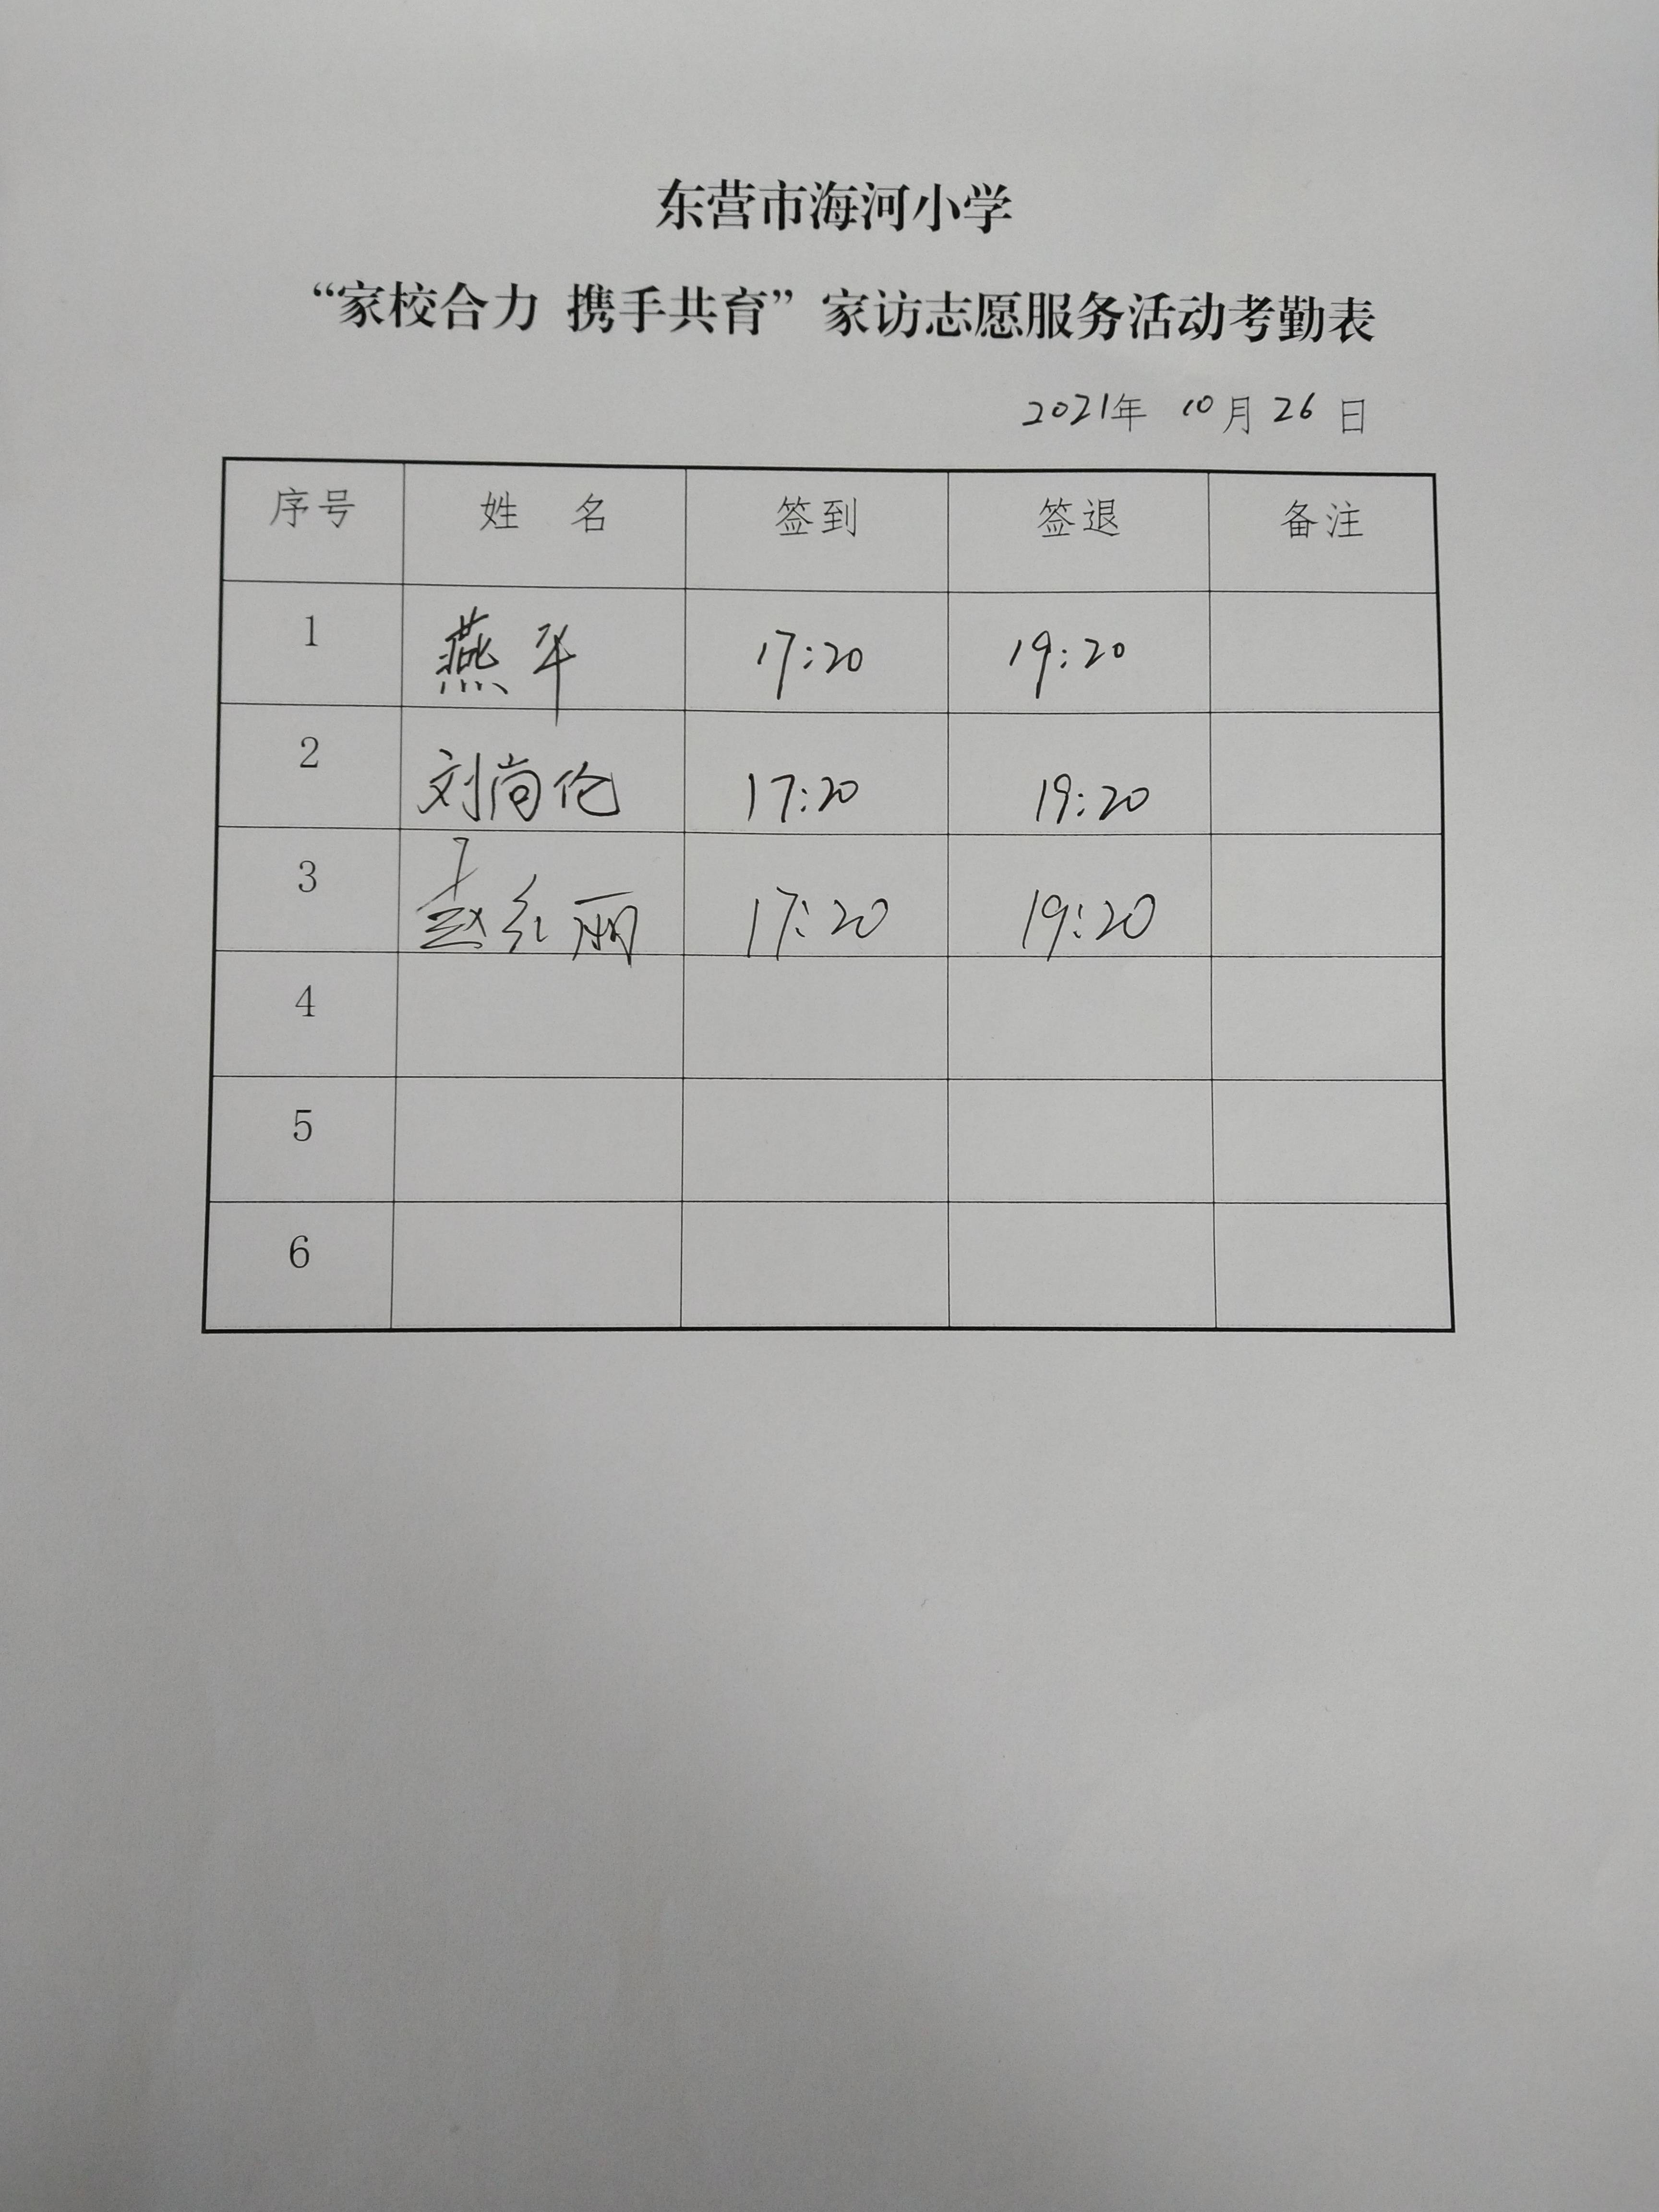 东营市海河小学
“家校合力 携手共育”家访志愿服务活动考勤表
2021年 10月26日
序号 姓 名 签到 签退 备注
1 燕平 17:20 19:20
2 刘尚伦 17:20 19:20
3 赵红丽 17:20 19:20
4
5
6